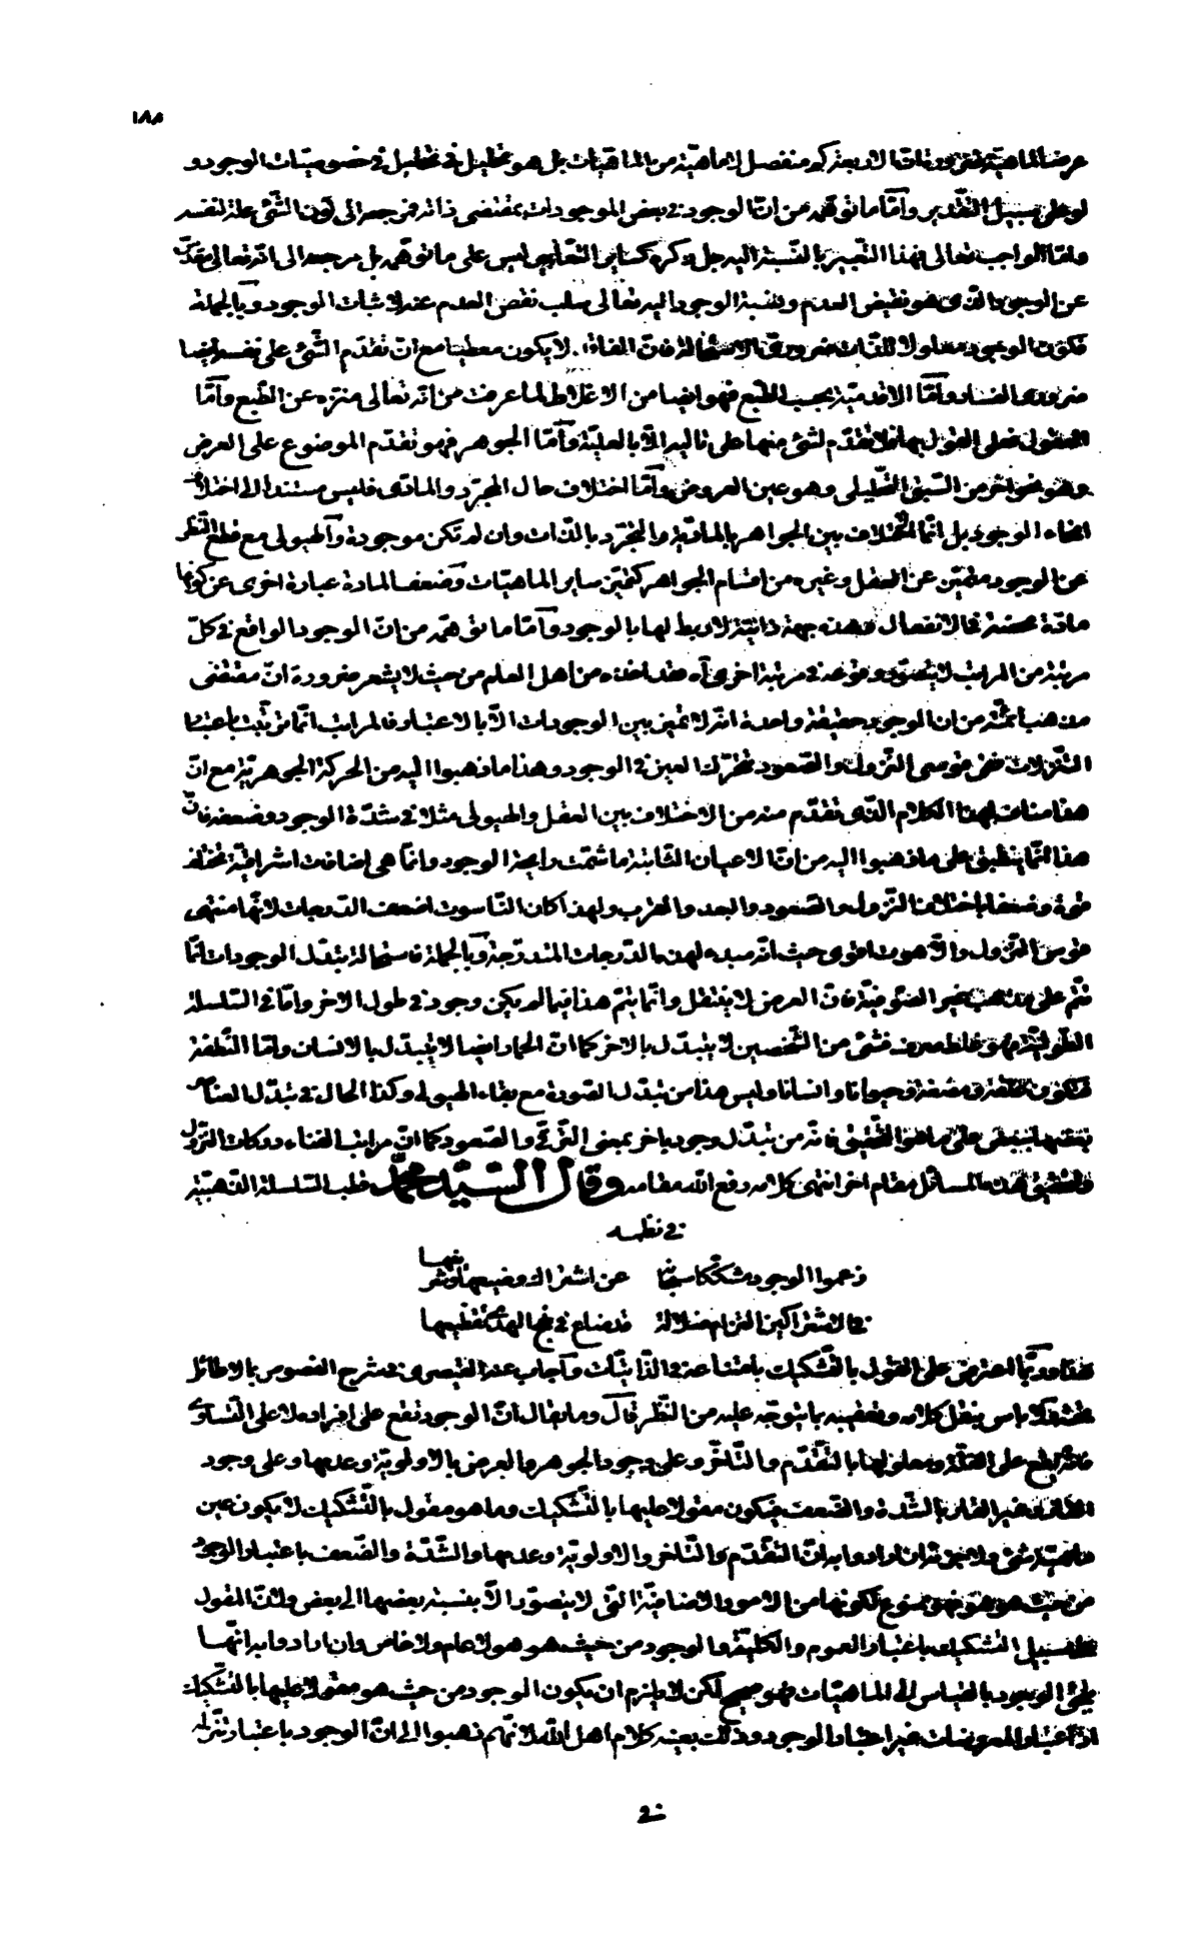 ١٨٨
عرضا لماهية من الماهيات بل هو تحليل في تحليل في خصوصيات الوجود و
لو على سبيل التقدير وأمّا ما توهّمه من انّ الوجود في بعض الموجودات بمقتضى ذاته فمرجعه الى كون الشّئ علة لنفسه
وامّا الواجب تعالى فهذا التعبير بالنّسبة اليه جل ذكره كساير التعابير ليس على ما توهّمه بل مرجعه الى انّه تعالى مقدّس
عن الوجود الذى هو نقيض العدم ونسبة الوجود اليه تعالى سلب نقص العدم عنه لا اثبات الوجود وبالجملة
فكون الوجود معلولا للذّات ضرورىّ الاستحالة فانّ الفاقد لا يكون معطيا مع انّ تقدّم الشّئ على نفسه ايضا
ضرورى الفساد وأمّا الاقدميّة بحسب الطّبع فهو ايضا من الاغلاط لما عرفت من انّه تعالى منزّه عن الطّبع وأمّا
العقول فعلى القول بها فلا تقدّم لشئ منها على تاليه الّا بالعليّة وأمّا الجوهر فهو تقدّم الموضوع على العرض
وهو نحو اخر من السّبق التحليلى وهو عين العروض وأمّا اختلاف حال المجرّد والمادّى فليس مستندا الى اختلاف
انحاء الوجود بل انّما الاختلاف بين الجواهر بالماديّة والتجرّد بالذّات وان لم تكن موجودة والهيولى مع قطع النّظر
عن الوجود متميّز عن العقل وغيره من اقسام الجواهر كتميّز ساير الماهيّات وضعف المادة عبارة اخرى عن كونها
مادّة محضة فى الانفعال وهذه جهة ذاتيّة لا ربط لها بالوجود وأمّا ما توهّمه من انّ الوجود الواقع فى كلّ
مرتبة من المراتب لا يتصوّر وقوعه فى مرتبة اخرى آه فقد اخذه من اهل العلم من حيث لا يشعر ضرورة انّ مقتضى
مذهب ائمّته من ان الوجود حقيقة واحدة انّه لا تميز بين الوجودات الّا بالاعتبار فالمراتب انّما ترتّبت باعتبار
التنزلات ففى قوسى النّزول والصّعود تحرّك العين فى الوجود وهذا ما ذهبوا اليه من الحركة الجوهريّة مع انّ
هذا مناف لهذا الكلام الذى تقدّم منه من الاختلاف بين العقل والهيولى مثلا فى شدّة الوجود وضعفه فانّ
هذا انّما ينطبق على ما ذهبوا اليه من انّ الاعيان الثّابتة ما شمّت رايحة الوجود وانّما هى اضافات اشراقيّة تختلف
قوة وضعفا باختلاف النّزول والصّعود والبعد والقرب ولهذا كان النّاسوت اضعف الدّرجات لانّها منتهى
قوس النّزول واللاهوت اقوى حيث انّه مبدء لهذه الدّرجات المندرجة وبالجملة فاستحالة تبدّل الوجودات انّما
تتمّ على مذهب غير الصّوفيّة فانّ العرض لا ينتقل وانّما يتمّ هذا فيما لم يكن وجود فى طول الاخر وامّا فى السّلسلة
الطّوليّة فهو غلط صرف فشئ من الشّخصين لا يتبدّل بالاخر كما انّ الجماد ايضا لا يتبدّل بالانسان وامّا النّطفة
فتكون علقة ومضغة وحيوانا وانسانا وليس هذا من تبدّل الصّورة مع بقاء الهيولى وكذا الحال فى تبدّل العناصر
بعضها ببعض على ما هو التّحقيق فانّه من تبدّل وجود باخر بمعنى التّرقّى والصّعود كما انّ مراتب الفناء دركات النّزول
ولتحقيق هذه المسائل مقام اخر انتهى كلامه رفع اللّه مقامه وقال السّيّد محمّد قطب السّلسلة الذّهبيّة
فى نظمه
زعموا الوجود مشكّكا سيقا عن اشتراك وضيعها وشريفها
فى الاشتراكين التزام ضلالة قد ضلع فى نهج الهدى تقطيعها
هذا وربّما اعترض على القول بالتّشكيك بامتناعه فى الذّاتيّات واجاب عنه القيصرى فى شرح الفصوص بما لا طائل
تحته فلا باس بنقل كلامه وتعقيبه بما يتوجّه عليه من النّظر قال وما يقال انّ الوجود تقع على افراده لا على التّساوى
فانّه يقع على العلّة ومعلولها بالتّقدّم والتّاخّر وعلى وجود الجوهر والعرض بالاولويّة وعدمها وعلى وجود
القارّ وغير القارّ بالشّدة والضّعف فيكون مقولا عليها بالتّشكيك وما هو مقول بالتّشكيك لا يكون عين
ماهيّة شئ ولا جزئه ان ارادوا به انّ التّقدّم والتّاخر والاولويّة وعدمها والشّدّة والضّعف باعتبار الوجود
من حيث هو هو فهو ممنوع لكونها من الامور الاضافيّة الّتى لا يتصوّر الّا بنسبة بعضها الى بعض ولانّ المقول
على سبيل التّشكيك باعتبار العموم والكليّة والوجود من حيث هو هو لا عام ولا خاص وان ارادوا به انّها
يلحق الوجود بالقياس الى الماهيّات فهو صحيح لكن لا يلزم ان يكون الوجود من حيث هو مقولا عليها بالتّشكيك
اذ اعتبار المعروضات غير اعتبار الوجود وذلك بعينه كلام اهل اللّه لانّهم ذهبوا الى انّ الوجود باعتبار تنزّله
فى